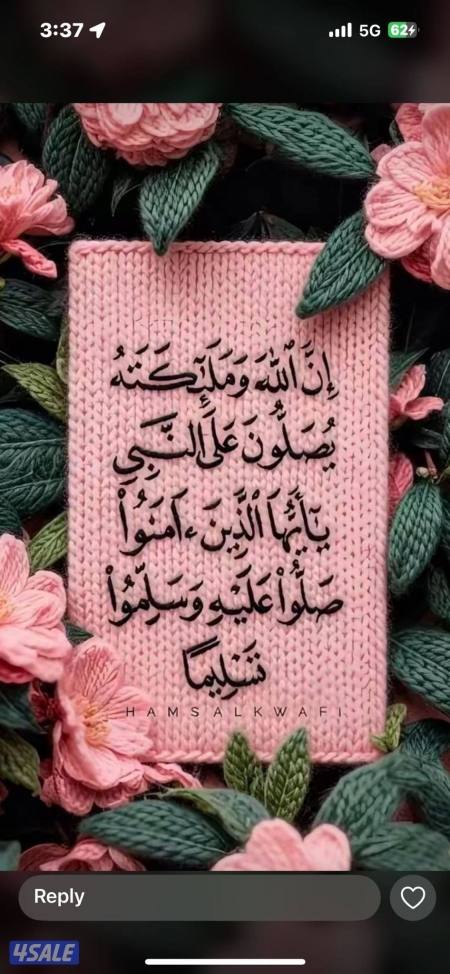 3:37
5G
62
إِنَّ ٱللَّهَ وَمَلَـٰٓئِكَتَهُۥ
يُصَلُّونَ عَلَى ٱلنَّبِىِّ
يَـٰٓأَيُّهَا ٱلَّذِينَ ءَامَنُوا۟
صَلُّوا۟ عَلَيْهِ وَسَلِّمُوا۟
تَسْلِيمًا
HAMSALKWAFI
Reply
4SALE